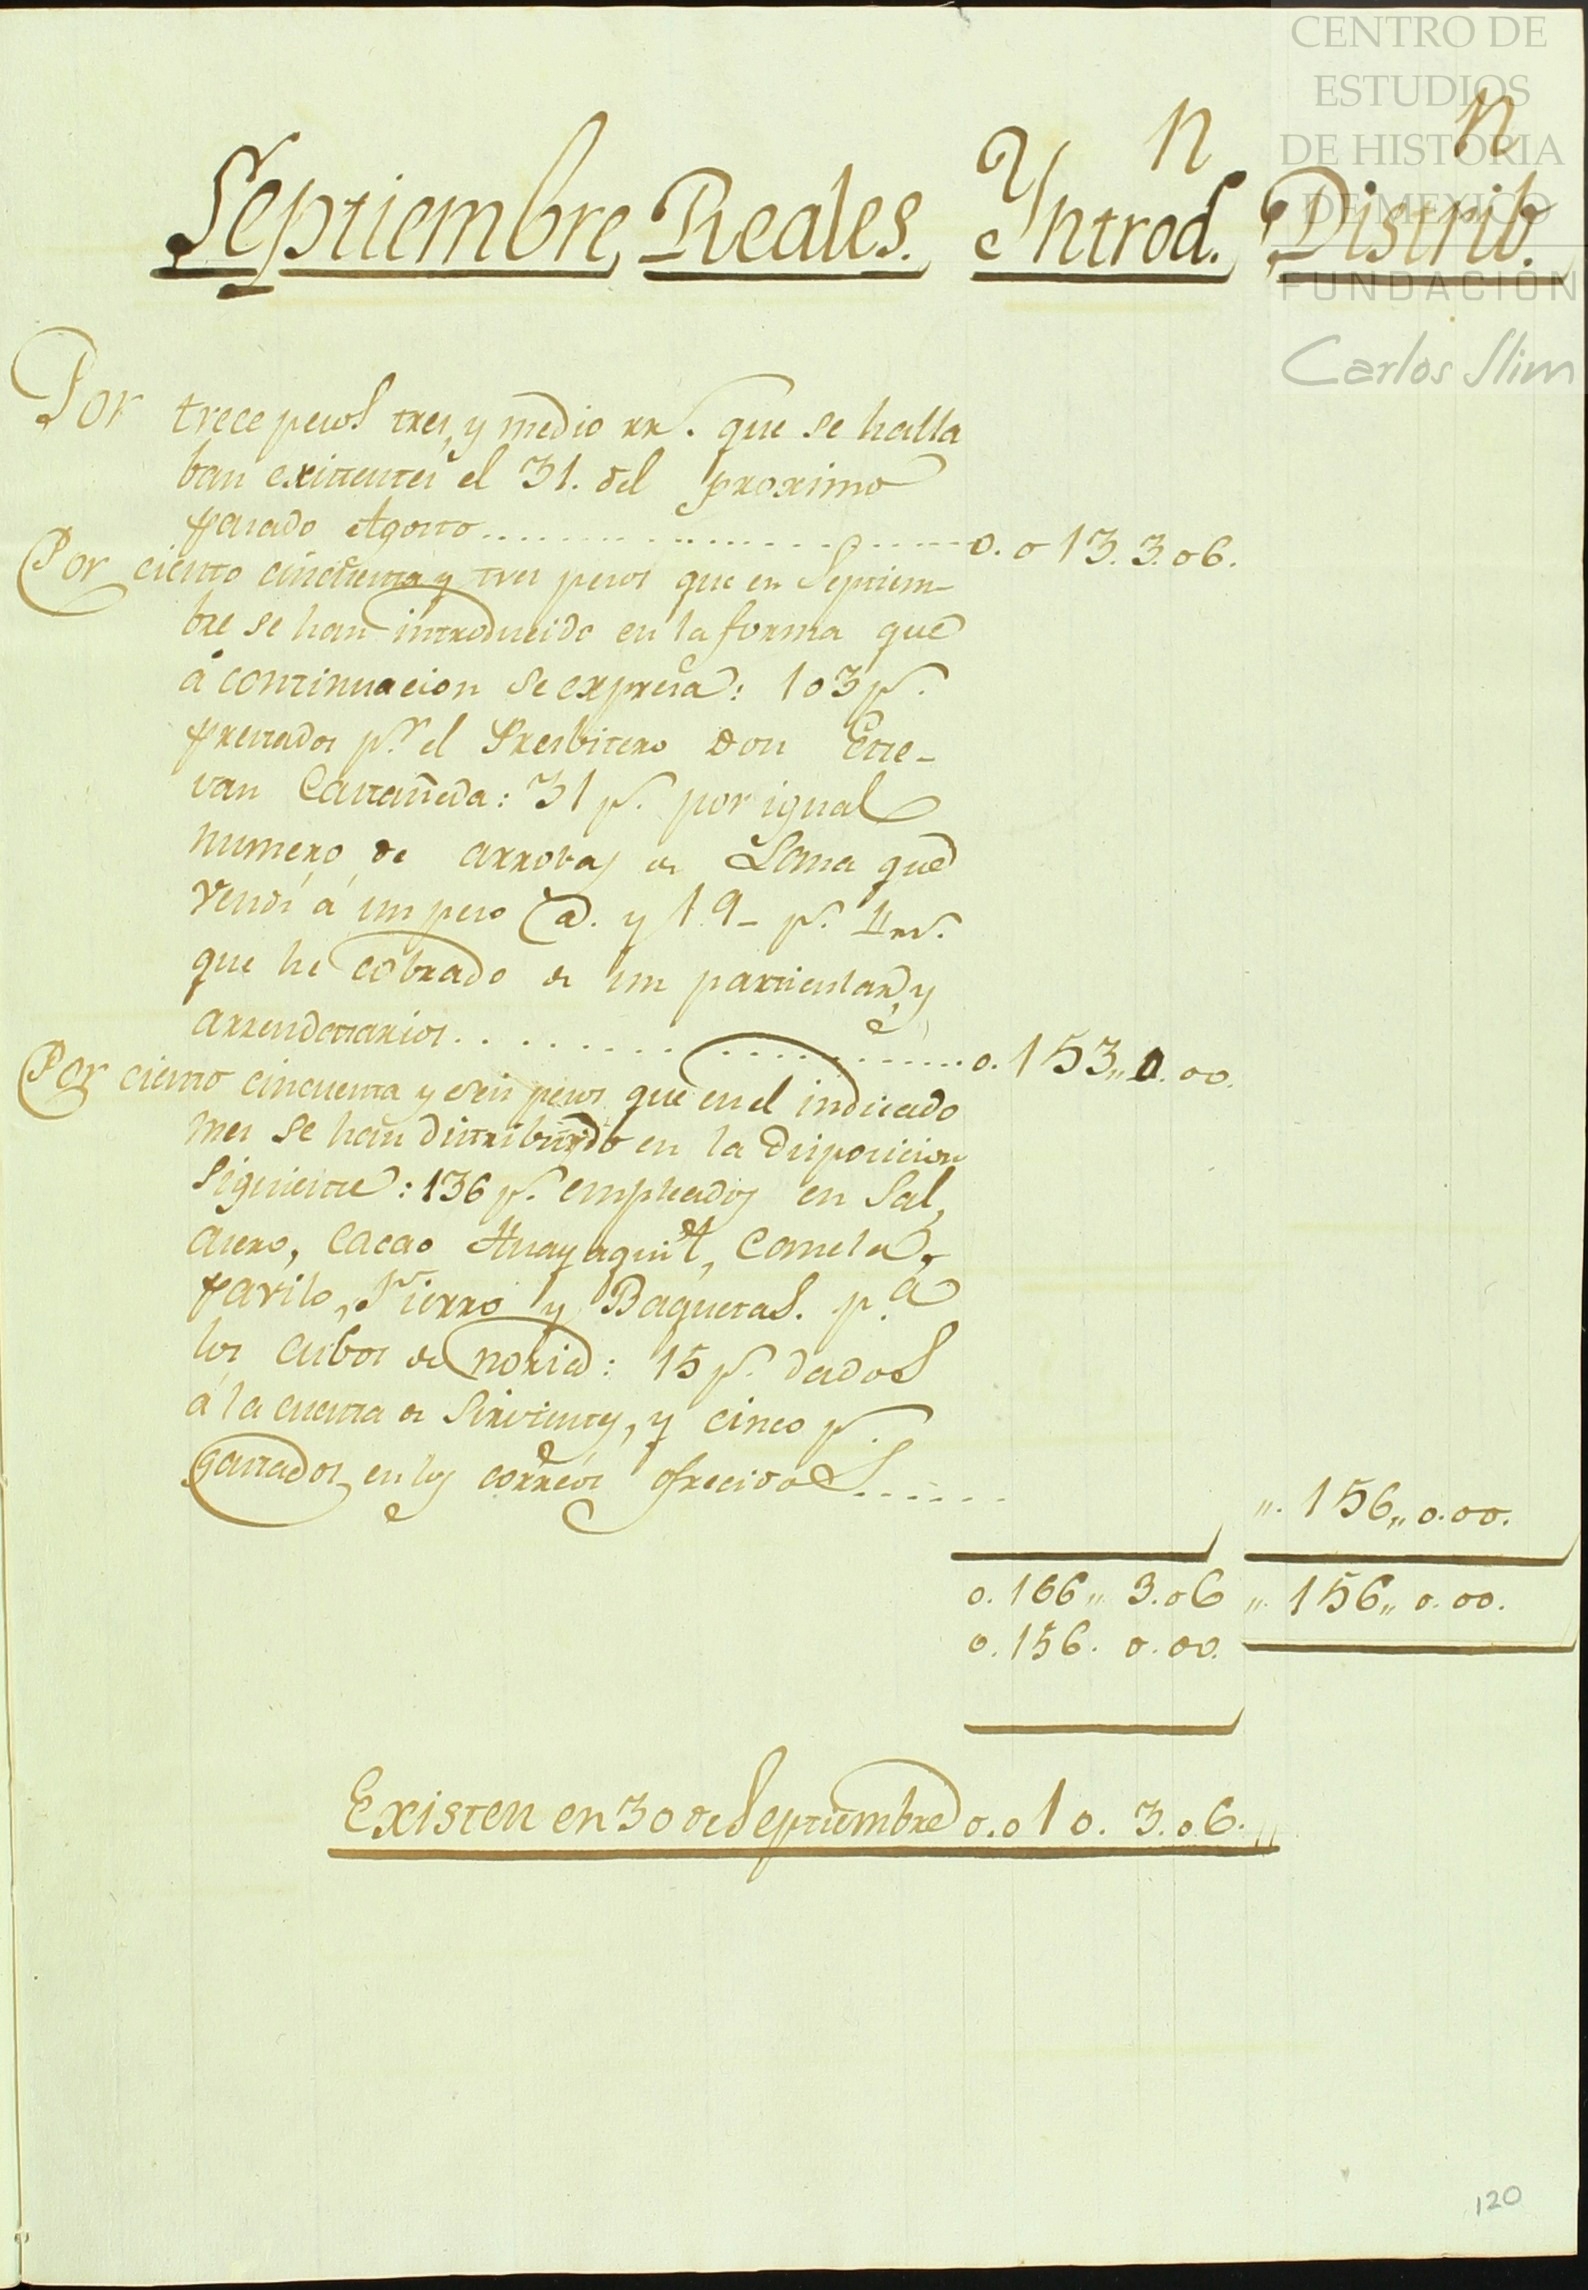 CENTRO DE
ESTUDIOS
DE HISTORIA
DE MEXICO
FUNDACIÓN
Carlos Slim
Septiembre, Reales. Yntrod.n Distrib.n
Por trece pesos tres, y medio rr.s que se halla
ban existentes el 31. del proximo
pasado Agosto........................0. 0 13. 3. 06.
Por ciento cincuenta y tres pesos que en Septiem-
bre se han introducido en la forma que
á continuacion se expresa: 103 p.s
prestados p.r el Presbitero Don Este-
van Castañeda: 31 p.s por igual
numero de arrobas de Lana que
vendí á un peso @. y 19- p.s
que he cobrado de un particular, y
arrendatarios........................0. 153,, 0. 00.
Por ciento cincuenta y seis pesos que en el indicado
mes se han distribuido en la disposicion
siguiente: 136 p.s empleados en Sal,
acero, Cacao Huayaquil, Canela,
pavilo, Fierro y Baquetas. p.a
los cubos de noria: 15 p.s dados
á la cuenta de sirvientes, y cinco p.s
gastados en los correos ofrecidos...... ,,. 156,, 0. 00.
0. 166,, 3. 06 ,,. 156,, 0. 00.
0. 156. 0. 00.
Existen en 30 de Septiembre 0. 0 10. 3. 06.
120